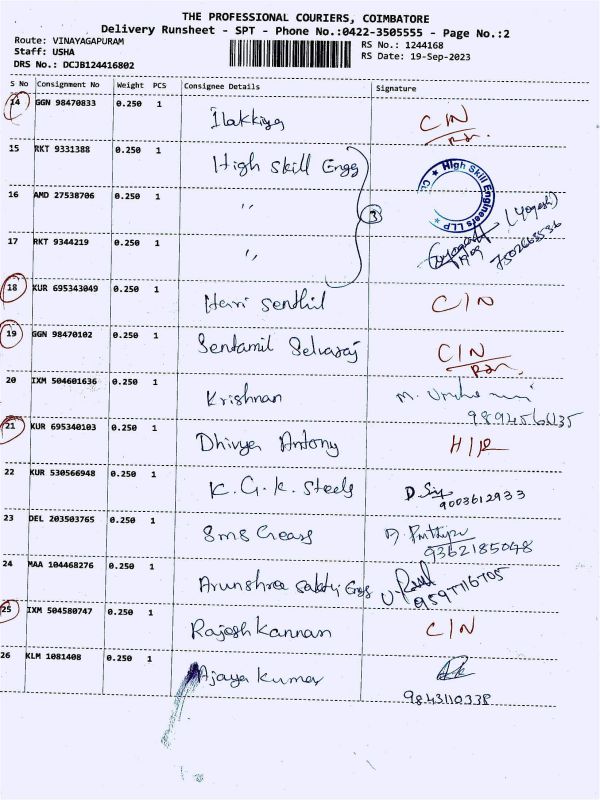 THE PROFESSIONAL COURIERS, COIMBATORE
Delivery Runsheet - SPT - Phone No.:0422-3505555 - Page No.:2
Route: VINAYAGAPURAM RS No.: 1244168
Staff: USHA RS Date: 19-Sep-2023
DRS No.: DCJB124416802
S No Consignment No Weight PCS Consignee Details Signature
14 GGN 98470833 0.250 1 Ilakkiya C/N
15 RKT 9331388 0.250 1 High Skill Engg High Skill Engineers LLP
16 AMD 27538706 0.250 1 " 3 (Yogesh)
17 RKT 9344219 0.250 1 "
18 KUR 695343049 0.250 1 Hari Senthil C/N
19 GGN 98470102 0.250 1 Sentamil Selvaraj C/N
20 IXM 504601636 0.250 1 Krishnan M.
21 KUR 695340103 0.250 1 Dhivya Antony
22 KUR 530566948 0.250 1 K.G.K. Steels
9003612933
23 DEL 203503765 0.250 1 Sms Gears
9362185048
24 MAA 104468276 0.250 1 Arunshree Sakthi Engg
25 IXM 504580747 0.250 1 Rajesh Kannan C/N
26 KLM 1081408 0.250 1 Ajaya Kumar
9843110338